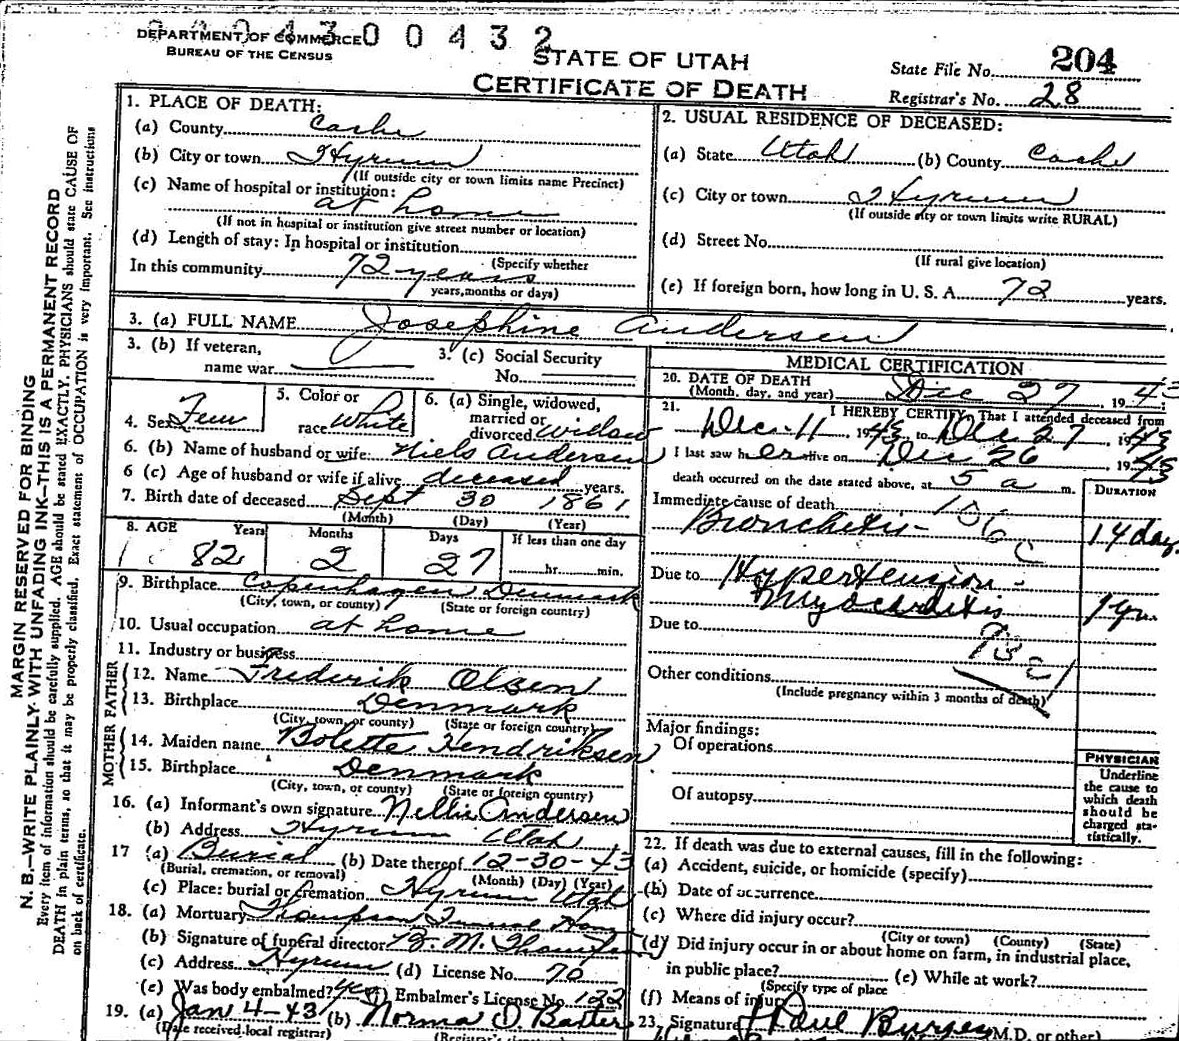 DEPARTMENT OF COMMERCE
BUREAU OF THE CENSUS
4 3 0 0 4 3 2
STATE OF UTAH
CERTIFICATE OF DEATH
State File No. 204
Registrar's No. 28
MARGIN RESERVED FOR BINDING
N. B.—WRITE PLAINLY WITH UNFADING INK—THIS IS A PERMANENT RECORD
Every item of information should be carefully supplied. AGE should be stated EXACTLY. PHYSICIANS should state CAUSE OF
DEATH in plain terms, so that it may be properly classified. Exact statement of OCCUPATION is very important. See instructions
on back of certificate.
1. PLACE OF DEATH:
(a) County Cache
(b) City or town Hyrum
(If outside city or town limits name Precinct)
(c) Name of hospital or institution:
at home
(If not in hospital or institution give street number or location)
(d) Length of stay: In hospital or institution
(Specify whether
In this community 72 years
years, months or days)
2. USUAL RESIDENCE OF DECEASED:
(a) State Utah (b) County Cache
(c) City or town Hyrum
(If outside city or town limits write RURAL)
(d) Street No.
(If rural give location)
(e) If foreign born, how long in U. S. A. 72 years.
3. (a) FULL NAME Josephine Andersen
3. (b) If veteran,
name war
3. (c) Social Security
No.
4. Sex Fem
5. Color or
race White
6. (a) Single, widowed,
married or
divorced Widow
6. (b) Name of husband or wife: Niels Andersen
6 (c) Age of husband or wife if alive deceased years.
7. Birth date of deceased Sept 30 1861
(Month) (Day) (Year)
8. AGE Years Months Days If less than one day
82 2 27 hr. min.
9. Birthplace Copenhagen Denmark
(City, town, or county) (State or foreign country)
10. Usual occupation at home
11. Industry or business
FATHER
12. Name Frederik Olsen
13. Birthplace Denmark
(City, town, or county) (State or foreign country)
MOTHER
14. Maiden name Bolette Hendriksen
15. Birthplace Denmark
(City, town, or county) (State or foreign country)
16. (a) Informant's own signature Nellie Andersen
(b) Address Hyrum Utah
17 (a) Burial (b) Date thereof 12-30-43
(Burial, cremation, or removal) (Month) (Day) (Year)
(c) Place: burial or cremation Hyrum Utah
18. (a) Mortuary Thompson Funeral Home
(b) Signature of funeral director M.
(c) Address Hyrum (d) License No. 70
(e) Was body embalmed? yes (f) Embalmer's License No. 122
19. (a) Jan 4-43 (b) Norma D Baxter
(Date received local registrar) (Registrar's signature)
MEDICAL CERTIFICATION
20. DATE OF DEATH
(Month, day, and year) Dec 27, 1943
21. I HEREBY CERTIFY, That I attended deceased from
Dec. 11, 1943 to Dec 27, 1943
I last saw her alive on Dec 26, 1943
death occurred on the date stated above, at 5 a m.
DURATION
Immediate cause of death 106 c
Bronchitis - 14 days
Due to Hypertension -
Myocarditis 1 yr.
Due to
Other conditions
(Include pregnancy within 3 months of death)
Major findings:
Of operations
Of autopsy
PHYSICIAN
Underline
the cause to
which death
should be
charged sta-
tistically.
22. If death was due to external causes, fill in the following:
(a) Accident, suicide, or homicide (specify)
(b) Date of occurrence
(c) Where did injury occur?
(City or town) (County) (State)
(d) Did injury occur in or about home on farm, in industrial place,
in public place? (e) While at work?
(Specify type of place
(f) Means of injury
23. Signature Paul Burgess M.D. or other)